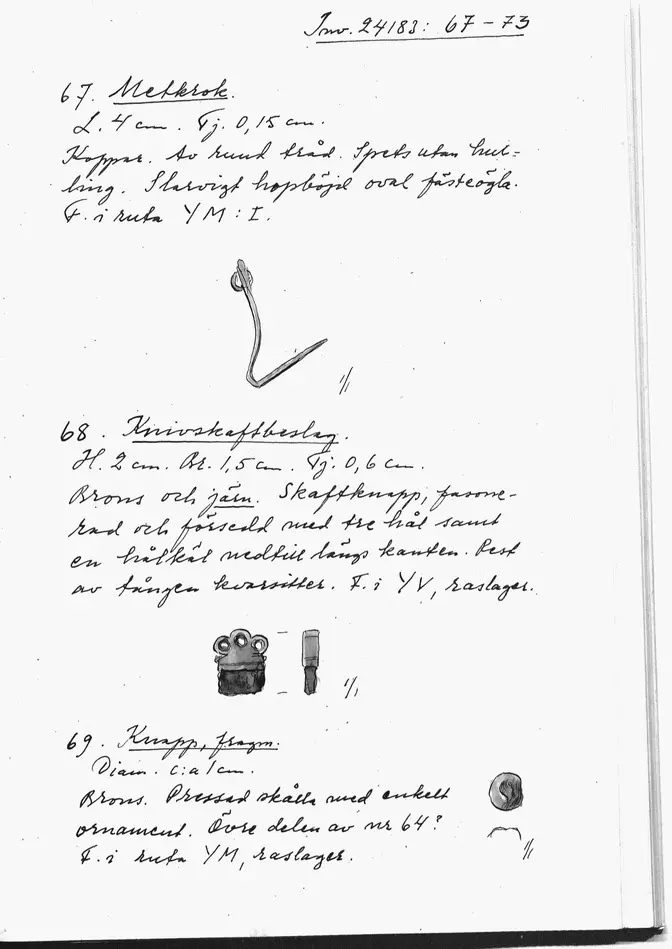 Inv. 24183: 67-73
67. Metkrok.
L. 4 cm. Tj. 0,15 cm.
Koppar. Av rund tråd. Spets utan hul=
ling. Slarvigt hopböjd oval fästeögla.
F. i ruta YM:I.
1/1
68. Knivskaftbeslag.
H. 2 cm. Br. 1,5 cm. Tj. 0,6 cm.
Brons och järn. Skaftknapp, fasone-
rad och försedd med tre hål samt
en hålkäl nedtill längs kanten. Rest
av tången kvarsitter. F. i YV, raslager.
1/1
69. Knapp, fragm.
Diam. c:a 1 cm.
Brons. Pressad skålla med enkelt
ornament. Övre delen av nr 64?
F. i ruta YM, raslager.
1/1